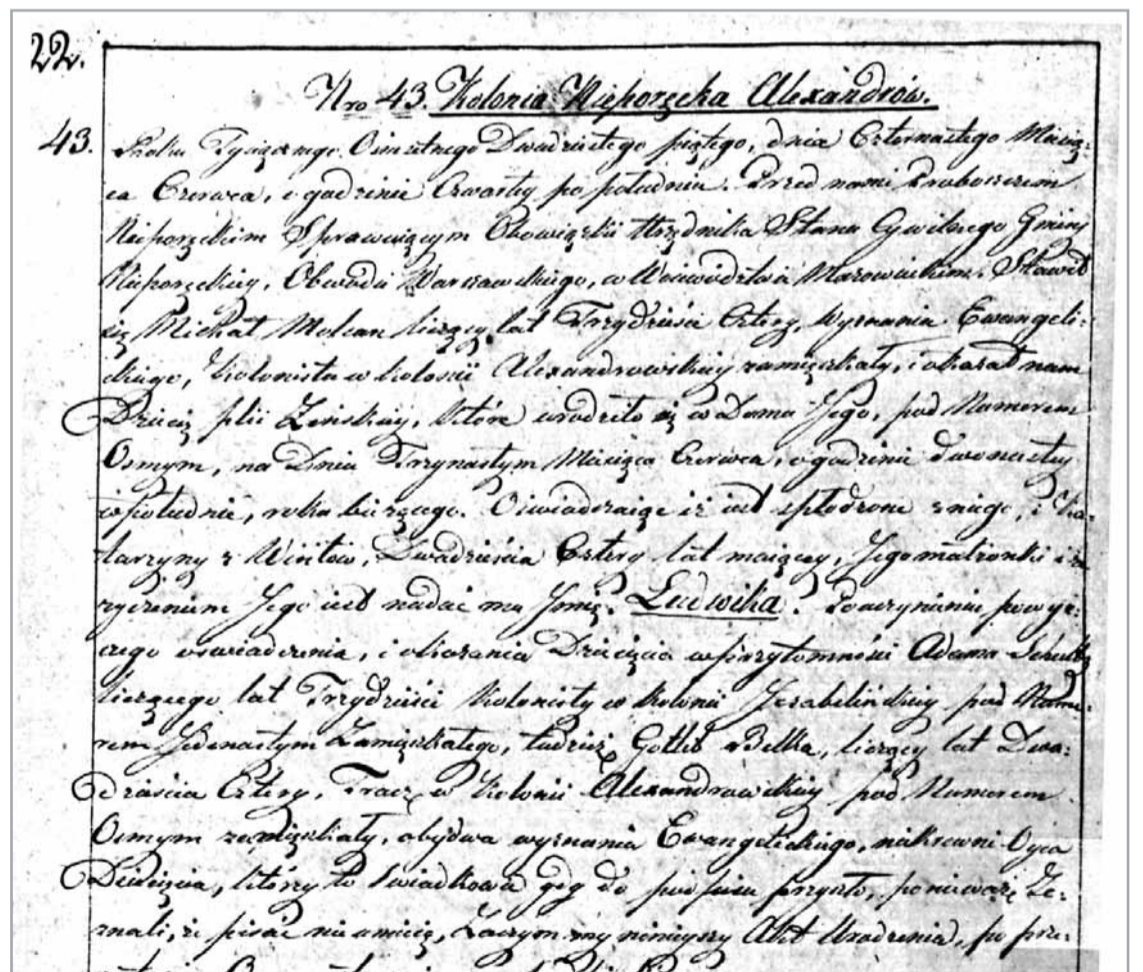 22.
Nro 43. Kolonia Nieporęcka Alexandrów.
43.
Roku Tysiącznego Osmsetnego Dwudziestego piątego, dnia Czternastego Miesią-
ca Czerwca, o godzinie Czwartey po południu. Przed nami Proboszczem
Nieporęckim Sprawuiącym Obowiązki Urzędnika Stanu Cywilnego Gminy
Nieporęckiey, Obwodu Warszawskiego, w Woiewództwie Mazowieckim. Stawił
się Michał liczący lat Trzydzieści Cztery, Wyznania Ewangeli-
ckiego, Kolonista w kolonii Alexandrowskiey zamięszkały, i okazał nam
Dziecię płci Żeńskiey, które urodziło się w Domu Jego, pod Numerem
Osmym, na Dniu Trzynastym Miesiąca Czerwca, o godzinie dwonastey
w południe, roku bieżącego. Oswiadczaiąc iż iest spłodzone z niego, i Ka-
tarzyny z Wintów, Dwadzieścia Cztery lat maiącey, Jego małżonki i że
życzeniem Jego iest nadać mu Jmię. Ludwika. Po uczynieniu powyż-
szego oswiadczenia, i okazania Dziecięcia w przytomności Adama
liczącego lat Trzydzieści Kolonisty w kolonii Jzabelińskiey pod Nume-
rem Jedenastym Zamięszkałego, tudzież Gotlib Belka, liczący lat Dwa-
dzieścia Cztery, Tracz w Kolonii Alexandrowskiey pod Numerem
Osmym zamięszkały, obydwa wyznania Ewangelickiego, niekrewni Oyca
Dziecięcia, którzy to Swiadkowie gdy do podpisu przyszło, ponieważ Ze-
znali, że pisać nie umieią, Zaczym my ninieyszy Akt Urodzenia, po prze-